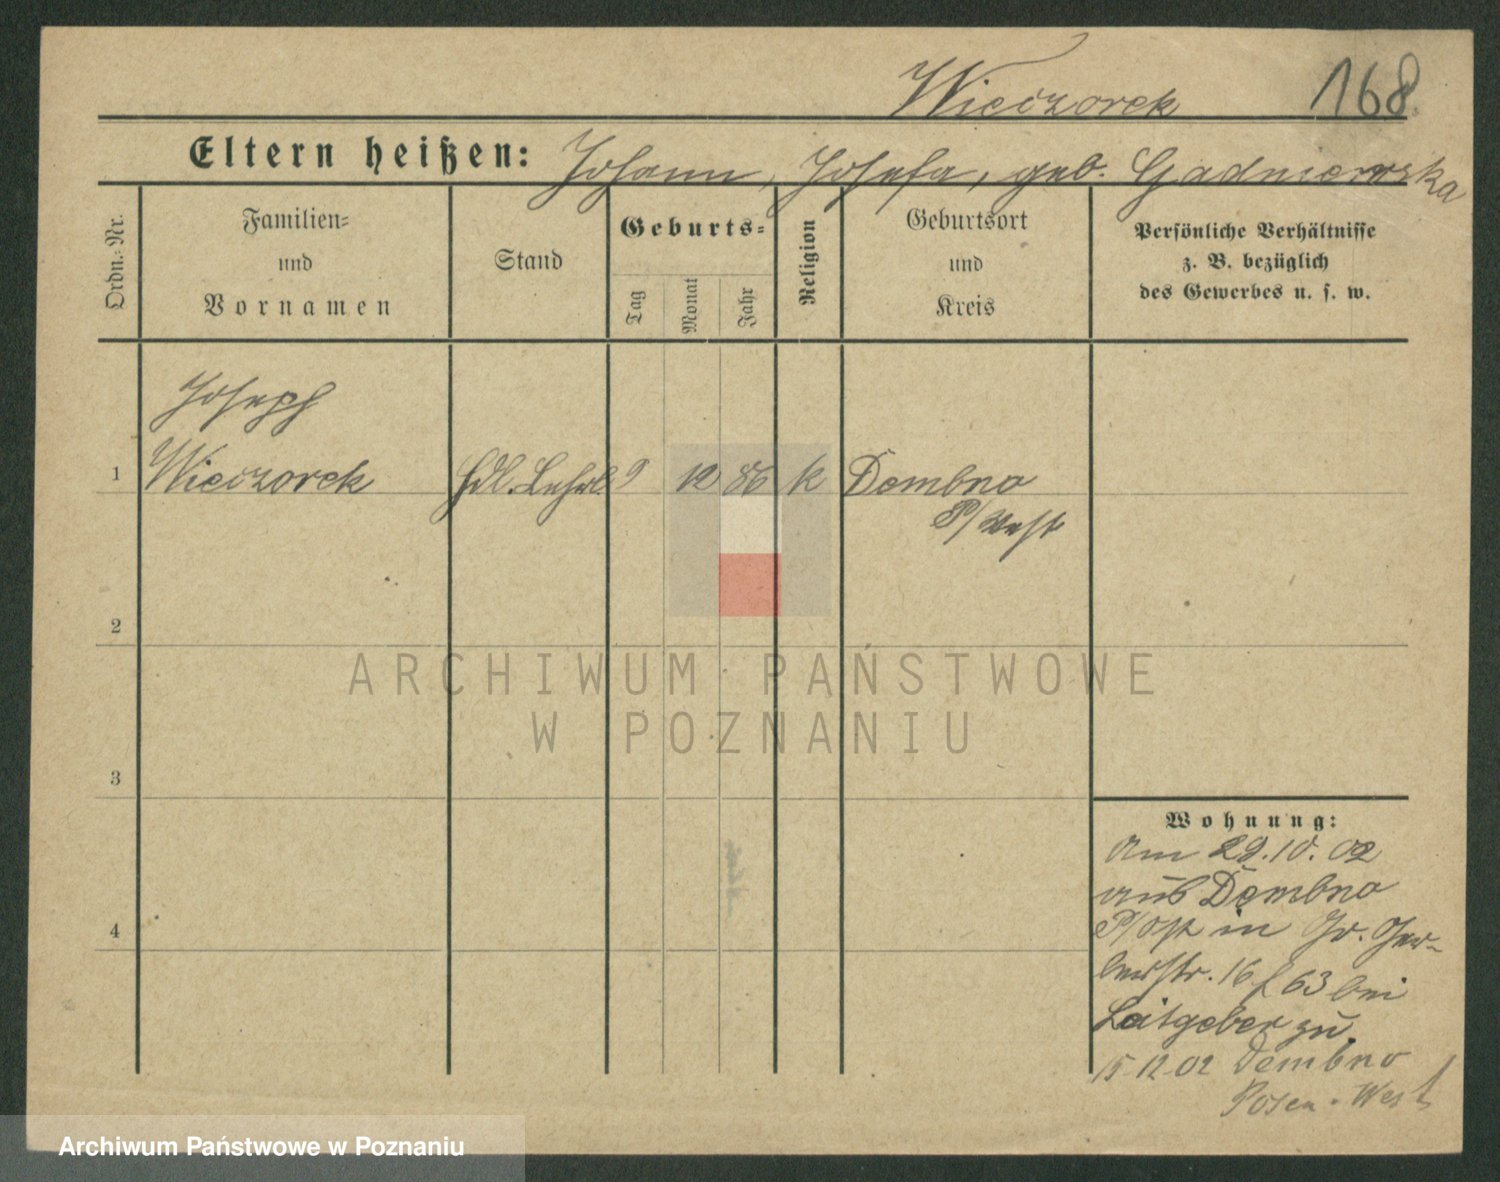 Wieczorek 168
Eltern heißen: Johann, Josefa, geb. Gadniewska
Ordn.-Nr.
Familien-
und
Vornamen
Stand
Geburts-
Tag
Monat
Jahr
Religion
Geburtsort
und
Kreis
Persönliche Verhältnisse
z. B. bezüglich
des Gewerbes u. s. w.
Joseph
1 Wieczorek Hdl. Lehrl. 9 12 86 k Dembno
P/West
2
3
4
Wohnung:
am 29.10.02
aus Dembno
P/Ost in Gr. Ger-
berstr. 16 f 63 bei
Leitgeber zu.
15 12 02 Dembno
Posen-West
ARCHIWUM PAŃSTWOWE
W POZNANIU
Archiwum Państwowe w Poznaniu